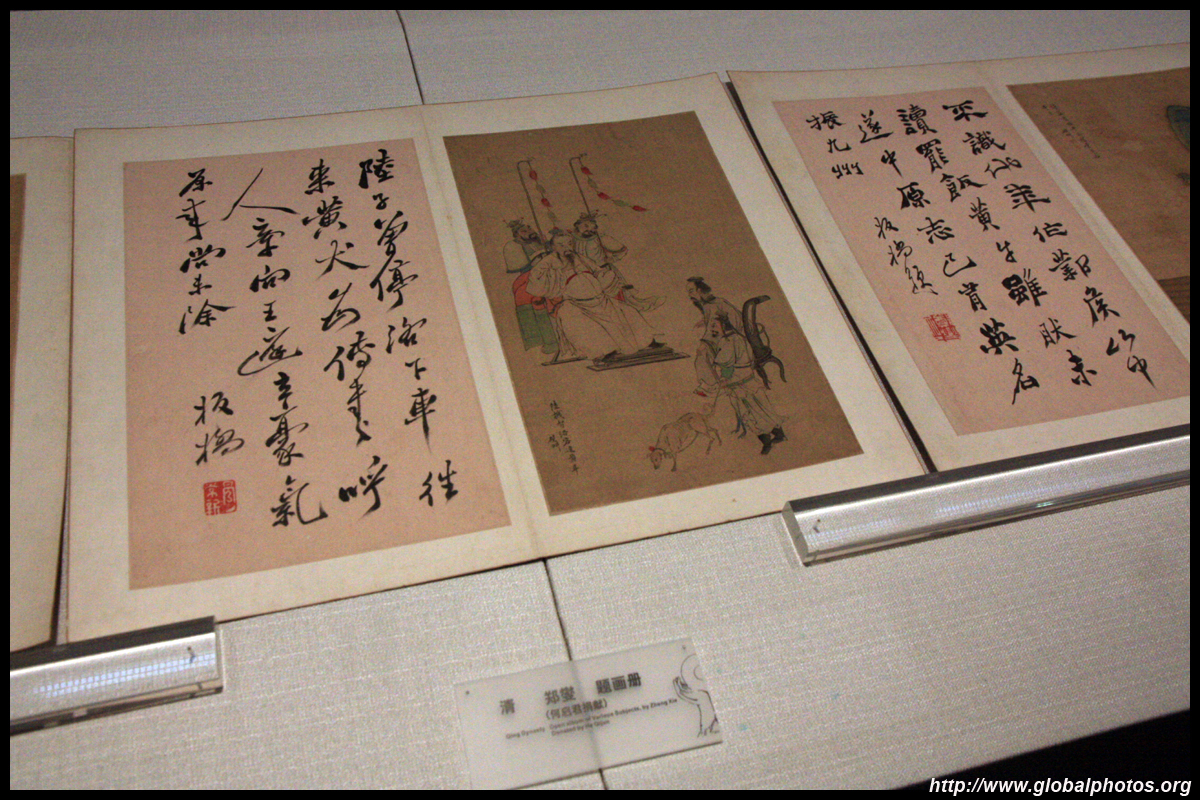 陸子曾停洛下車往
來黃犬為傳書呼
人向王庭豪氣
原來尚未除
板橋
識年侯山中
讀罷飯黃牛雖然未
遂中原志已有英名
振九州
板橋題
清 郑燮 题画册
(何启君捐献)
Qing Dynasty album of Various Subjects, by Zheng Xie
Donated by He Qijun
http://www.globalphotos.org